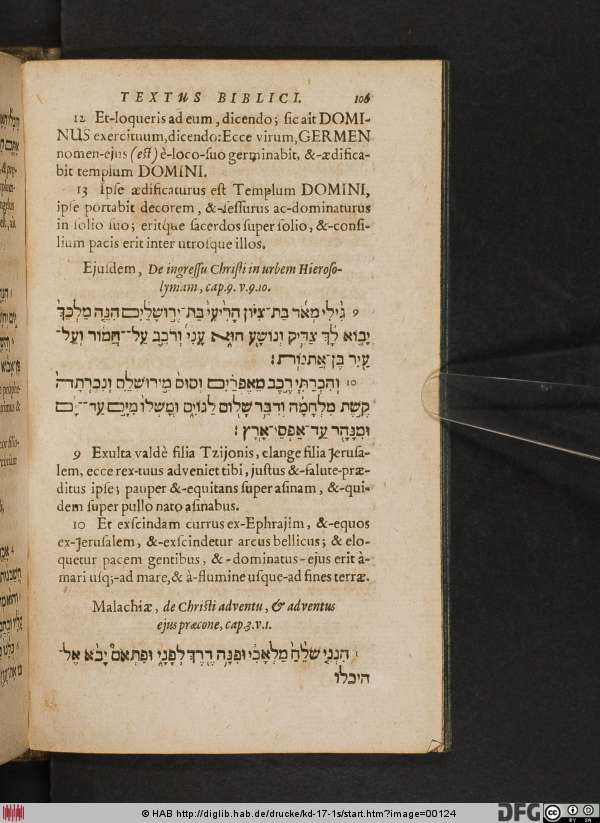 TEXTUS BIBLICI. 106
12 Et-loqueris ad eum, dicendo; sic ait DOMI-
NUS exercituum, dicendo: Ecce virum, GERMEN
nomen-ejus (est) è-loco-suo germinabit, &-ædifica-
bit templum DOMINI.
13 Ipse ædificaturus est Templum DOMINI,
ipse portabit decorem, &-sessurus ac-dominaturus
in solio suo; eritque sacerdos super solio, &-consi-
lium pacis erit inter utrosque illos.
Ejusdem, De ingressu Christi in urbem Hieroso-
lymam, cap. 9. v. 9. 10.
9 גִּילִי מְאֹד בַּת־צִיּוֹן הָרִיעִי בַּת־יְרוּשָׁלִַים הִנֵּה מַלְכֵּךְ
יָבוֹא לָךְ צַדִּיק וְנוֹשָׁע הוּא עָנִי וְרֹכֵב עַל־חֲמוֹר וְעַל־
עַיִר בֶּן־אֲתֹנוֹת׃
10 וְהִכְרַתִּי רֶכֶב מֵאֶפְרַיִם וְסוּס מִירוּשָׁלִַם וְנִכְרְתָה
קֶשֶׁת מִלְחָמָה וְדִבֶּר שָׁלוֹם לַגּוֹיִם וּמָשְׁלוֹ מִיָּם עַד־יָם
וּמִנָּהָר עַד־אַפְסֵי־אָרֶץ׃
9 Exulta valdè filia Tzijonis, clange filia Jerusa-
lem, ecce rex-tuus adveniet tibi, justus &-salute-præ-
ditus ipse; pauper &-equitans super asinam, &-qui-
dem super pullo nato asinabus.
10 Et exscindam currus ex-Ephrajim, &-equos
ex-Jerusalem, &-exscindetur arcus bellicus; & elo-
quetur pacem gentibus, &-dominatus-ejus erit à-
mari usq;-ad mare, & à-flumine usque-ad fines terræ.
Malachiæ, de Christi adventu, & adventus
ejus præcone, cap. 3. v. 1.
1 הִנְנִי שֹׁלֵחַ מַלְאָכִי וּפִנָּה דֶרֶךְ לְפָנָי וּפִתְאֹם יָבֹא אֶל־
היכלו
© HAB http://diglib.hab.de/drucke/kd-17-1s/start.htm?image=00124
DFG